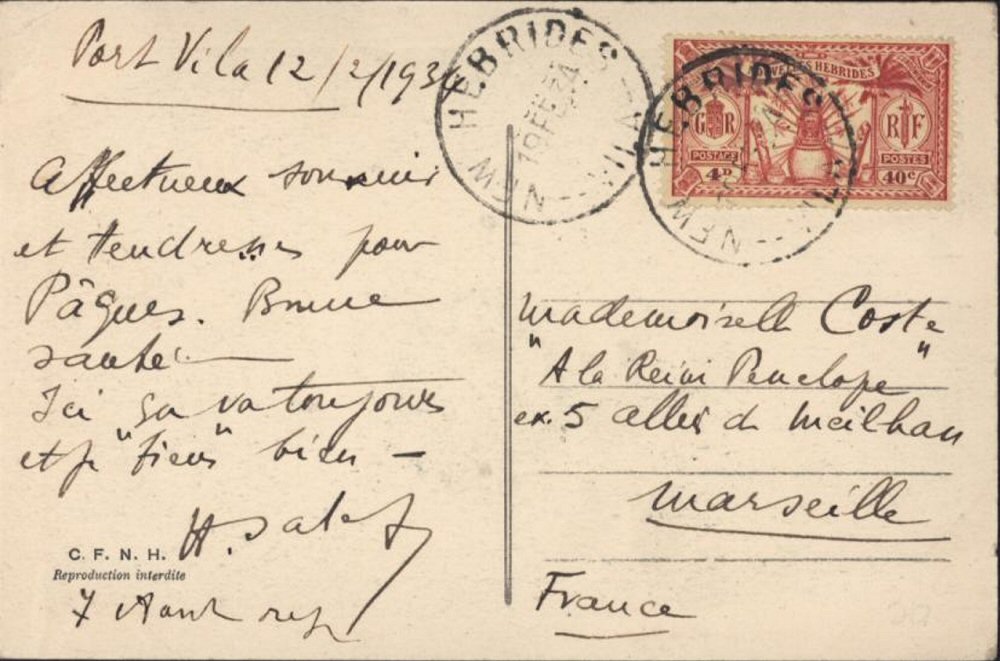 Port Vila 12/2/1934
Affectueux souvenir
et tendresses pour
Pâques. Bonne
santé.
Ici ça va toujours
et je "tiens" bien —
H.
C. F. N. H.
Reproduction interdite
7
NEW HEBRIDES — VILA
19 FE 34
NEW HEBRIDES — VILA
NOUVELLES HEBRIDES
GR
RF
POSTAGE
POSTES
4D
40c
Mademoiselle Coste
"A la Reine Penelope"
ex. 5 allées de Meilhan
Marseille
France